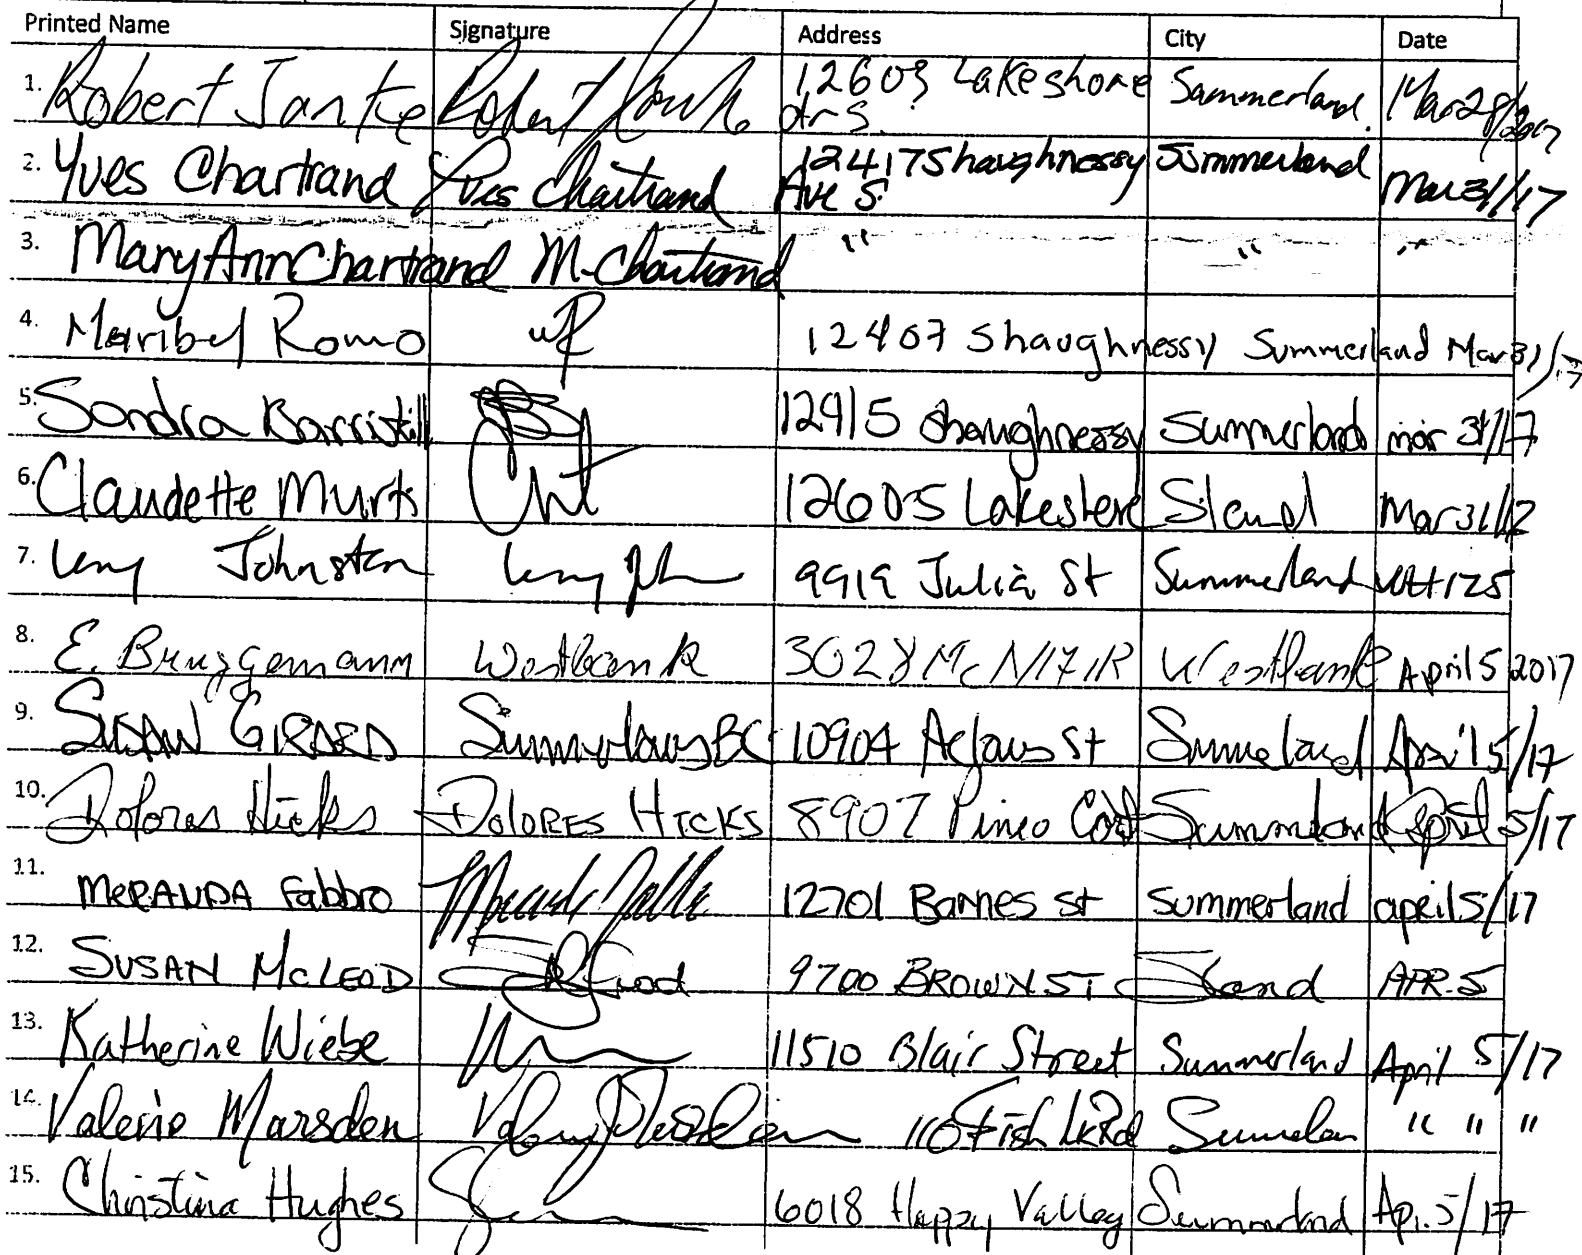 Printed Name Signature Address City Date
1. Robert Jantke Robert 12603 Lakeshore Summerland. Mar 28/2017
dr S.
2. Yves Chartrand Yves Chartrand 12417 Shaughnessy Summerland Mar 31/17
Ave S.
3. MaryAnn Chartrand M. Chartrand " " "
4. Maribel Romo 12407 Shaughnessy Summerland Mar 31/17
5. Sandra Barristill 12415 Shaughnessy Summerland mar 31/17
6. Claudette Murk 12605 Lakeshore S'land Mar 31/17
7. Johnston 9919 Julia St Summerland
8. E. Bruggemann Westbank 3028 McN Westbank April 5 2017
9. SUSAN GIRARD Summerland BC 10904 St Summerland April 5/17
10. Dolores Hicks DOLORES HICKS 8907 Pineo Crt Summerland April 5/17
11. MERANDA Fabbro 12701 Barnes st summerland april 5/17
12. SUSAN MCLEOD 9700 BROWN ST S'land APR. 5
13. Katherine Wiebe 11510 Blair Street Summerland April 5/17
14. Valerie Marsden Fish Lk Rd " " "
15. Christina Hughes 6018 Happy Valley Summerland Apr. 5/17